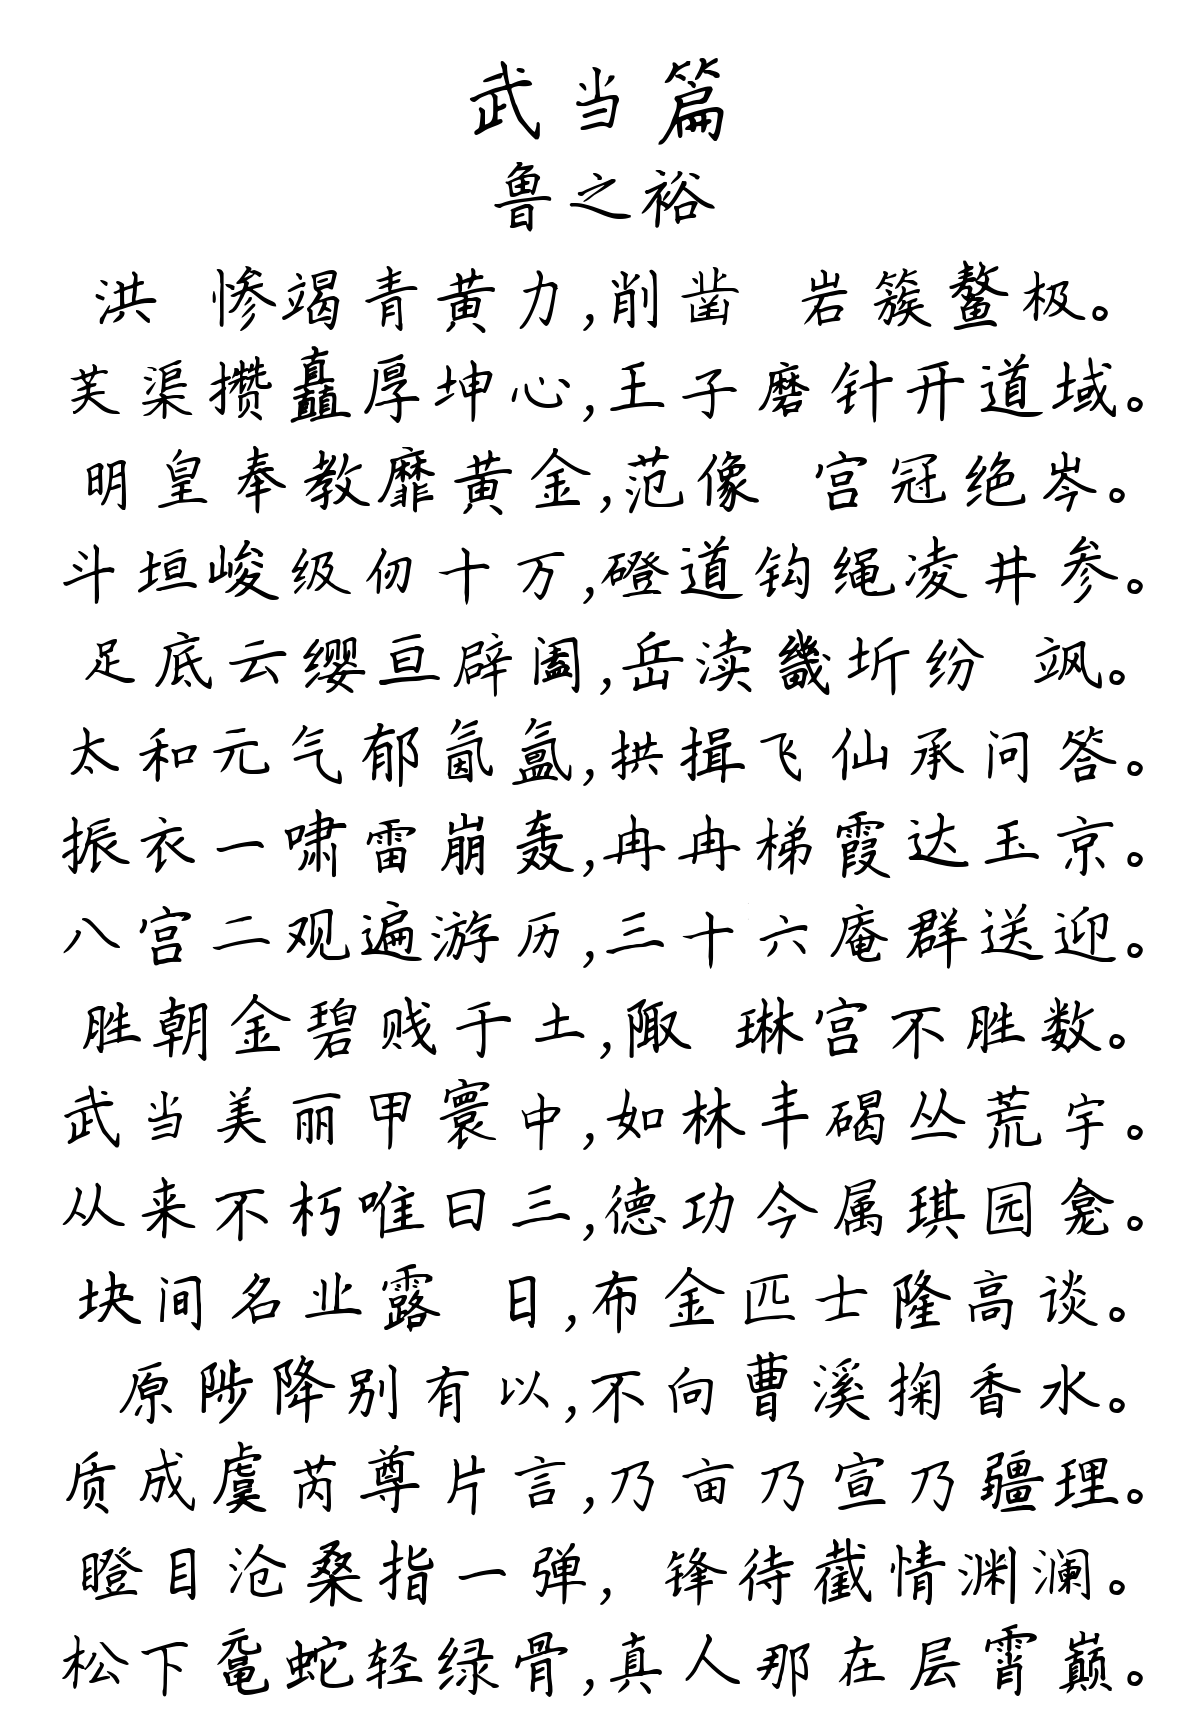 武当篇
鲁之裕
洪 惨竭青黄力,削凿 岩簇鳌极。
芙渠攒矗厚坤心,王子磨针开道域。
明皇奉教靡黄金,范像 宫冠绝岑。
斗垣峻级仞十万,磴道钩绳凌井参。
足底云缨亘辟阖,岳渎畿圻纷 飒。
太和元气郁氤氲,拱揖飞仙承问答。
振衣一啸雷崩轰,冉冉梯霞达玉京。
八宫二观遍游历,三十六庵群送迎。
胜朝金碧贱于土,陬 琳宫不胜数。
武当美丽甲寰中,如林丰碣丛荒宇。
从来不朽唯曰三,德功今属琪园龛。
块间名业露 日,布金匹士隆高谈。
原陟降别有以,不向曹溪掬香水。
质成虞芮尊片言,乃亩乃宣乃疆理。
瞪目沧桑指一弹, 锋待截情渊澜。
松下鼋蛇轻绿骨,真人那在层霄巅。